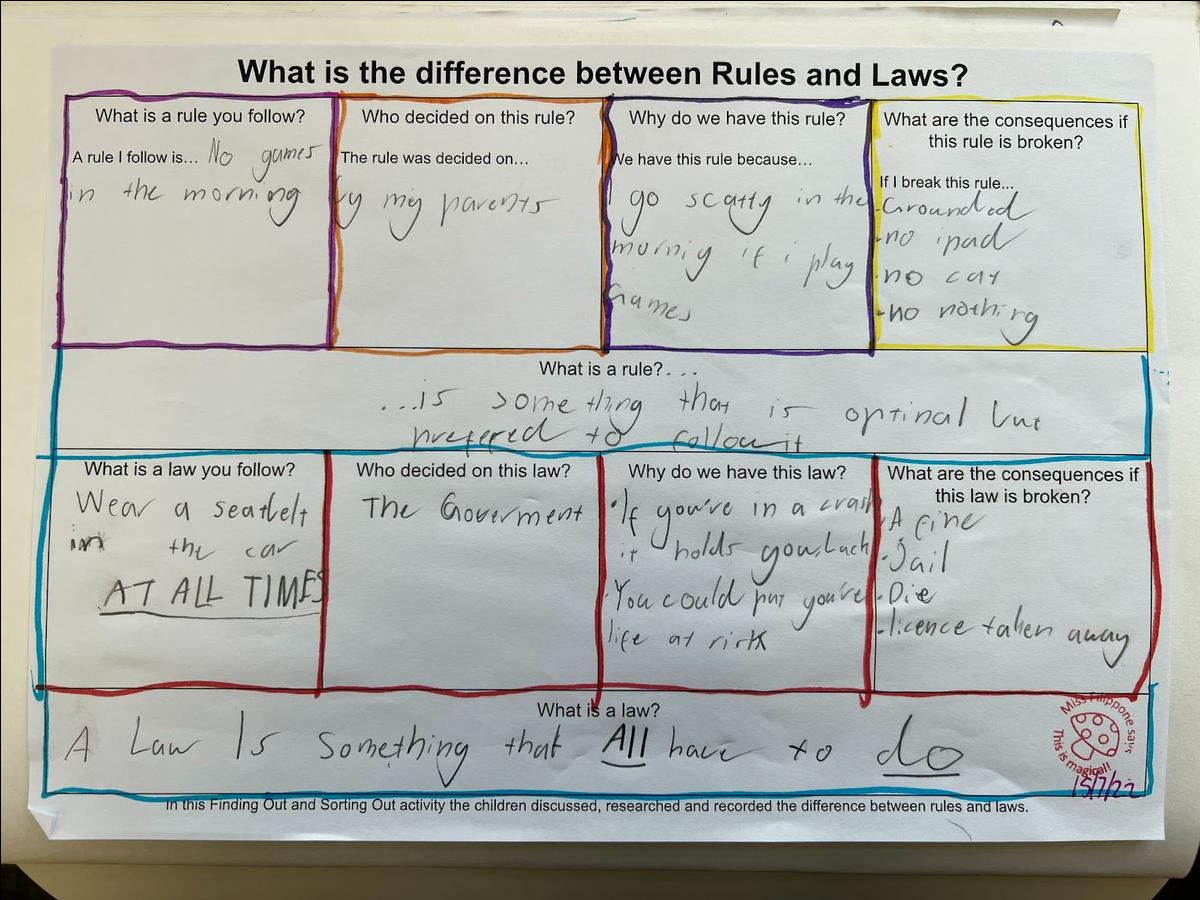 What is the difference between Rules and Laws?
What is a rule you follow?
A rule I follow is... No games
in the morning
Who decided on this rule?
The rule was decided on...
by my parents
Why do we have this rule?
We have this rule because...
I go scatty in the
mornig if i play
Games
What are the consequences if
this rule is broken?
If I break this rule...
-Grounded
-no ipad
-no cat
-no nothing
What is a rule?...
...is something that is optinal but
prefered to follow it
What is a law you follow?
Wear a seatbelt
in the car
AT ALL TIMES
Who decided on this law?
The Goverment
Why do we have this law?
•If you're in a crash
it holds you back
•You could put you're
life at risk
What are the consequences if
this law is broken?
•A fine
•Jail
•Die
-licence taken away
What is a law?
A Law Is Something that All have to do
Miss Filippone says
This is magical!
15/7/22
In this Finding Out and Sorting Out activity the children discussed, researched and recorded the difference between rules and laws.